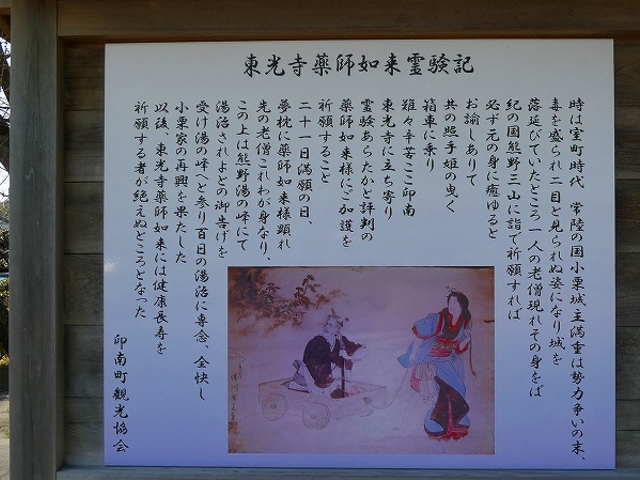 東光寺薬師如来霊験記
時は室町時代　常陸の国小栗城主満重は勢力争いの末、
毒を盛られ二目と見られぬ姿になり城を
落延びていたところ一人の老僧現れその身をば
紀の国熊野三山に詣で祈願すれば
必ず元の身に癒ゆると
お諭しありて
共の照手姫の曳く
箱車に乗り
難々辛苦ここ印南
東光寺に立ち寄り
霊験あらたかと評判の
薬師如来様にご加護を
祈願すること
二十一日満願の日、
夢枕に薬師如来様顕れ
先の老僧これわが身なり、
この上は熊野湯の峰にて
湯治されよとの御告げを
受け湯の峰へと参り百日の湯治に専念、全快し
小栗家の再興を果たした
以後、東光寺薬師如来には健康長寿を
祈願する者が絶えぬところとなった
印南町観光協会